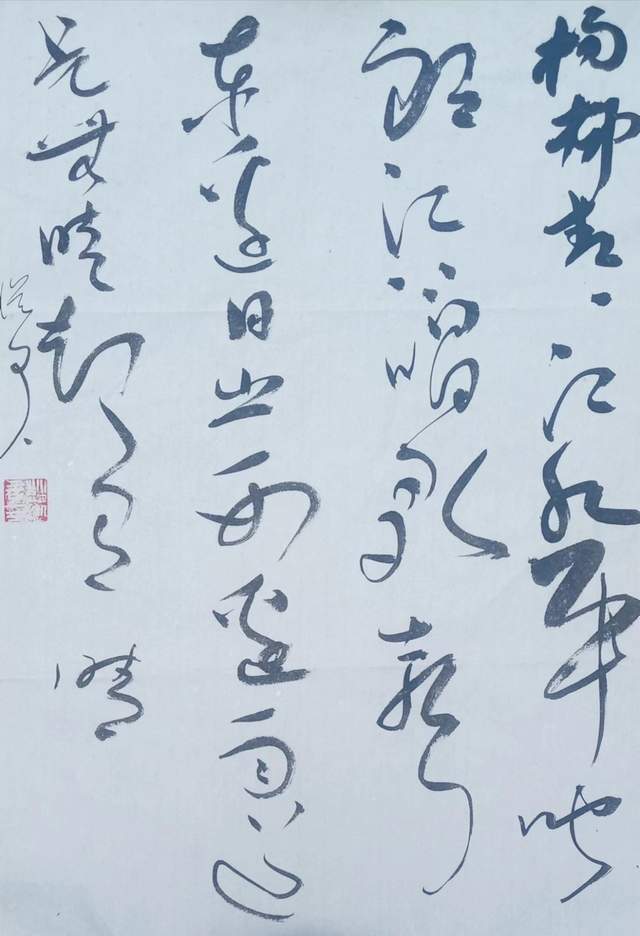 杨柳青、江水平闻
郎江上唱歌声
东边日出西边雨道
是无晴却有晴